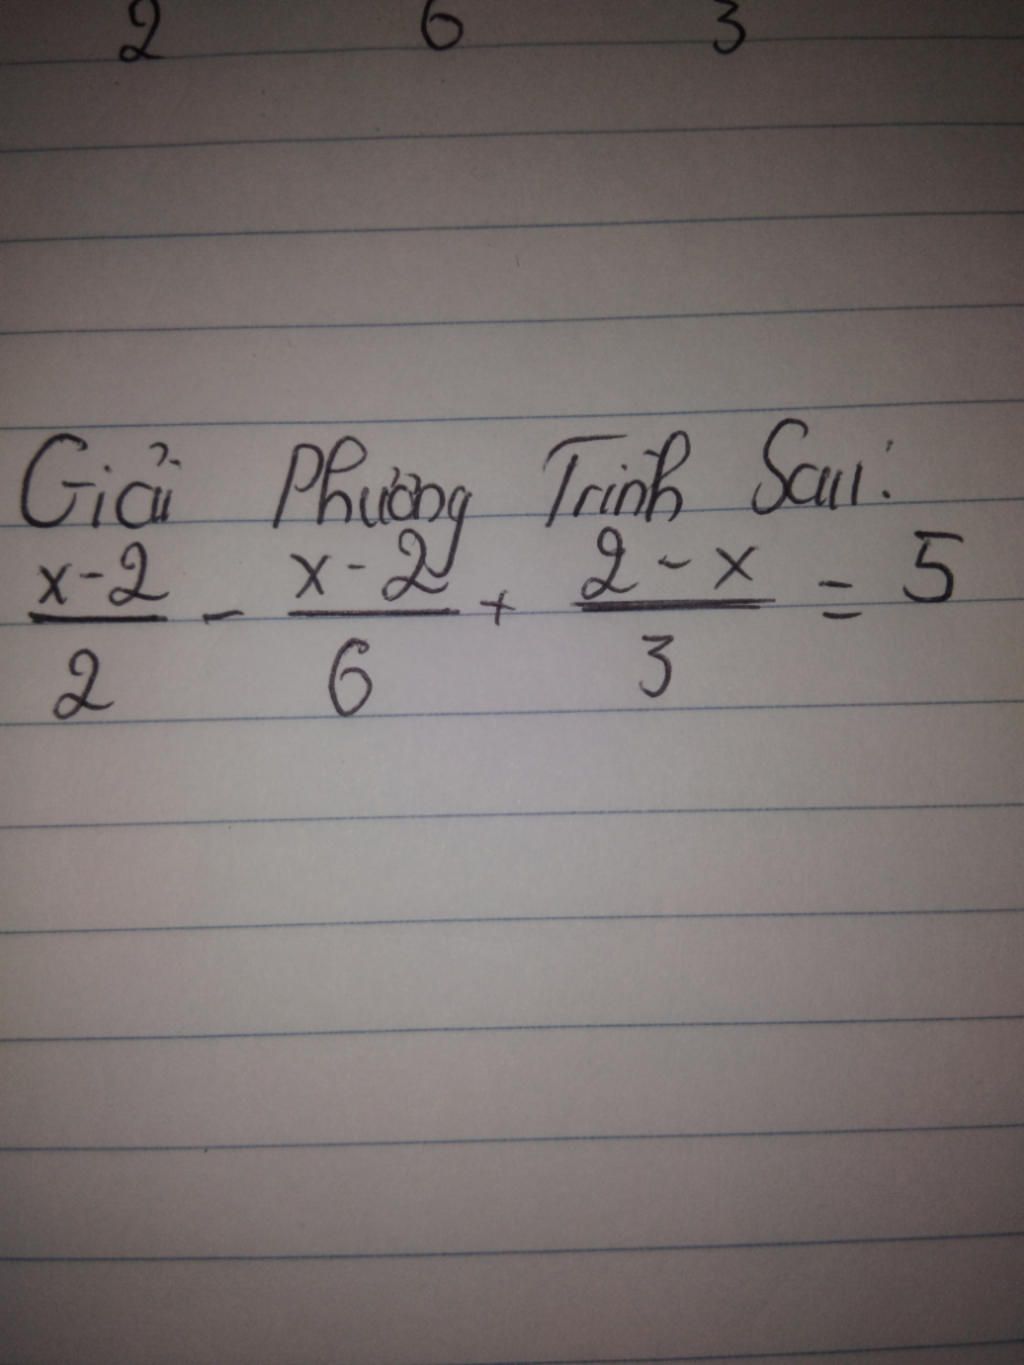 2 6 3
Giải Phương Trình Sau:
x-2 x-2 2-x
— - — + — = 5
2 6 3